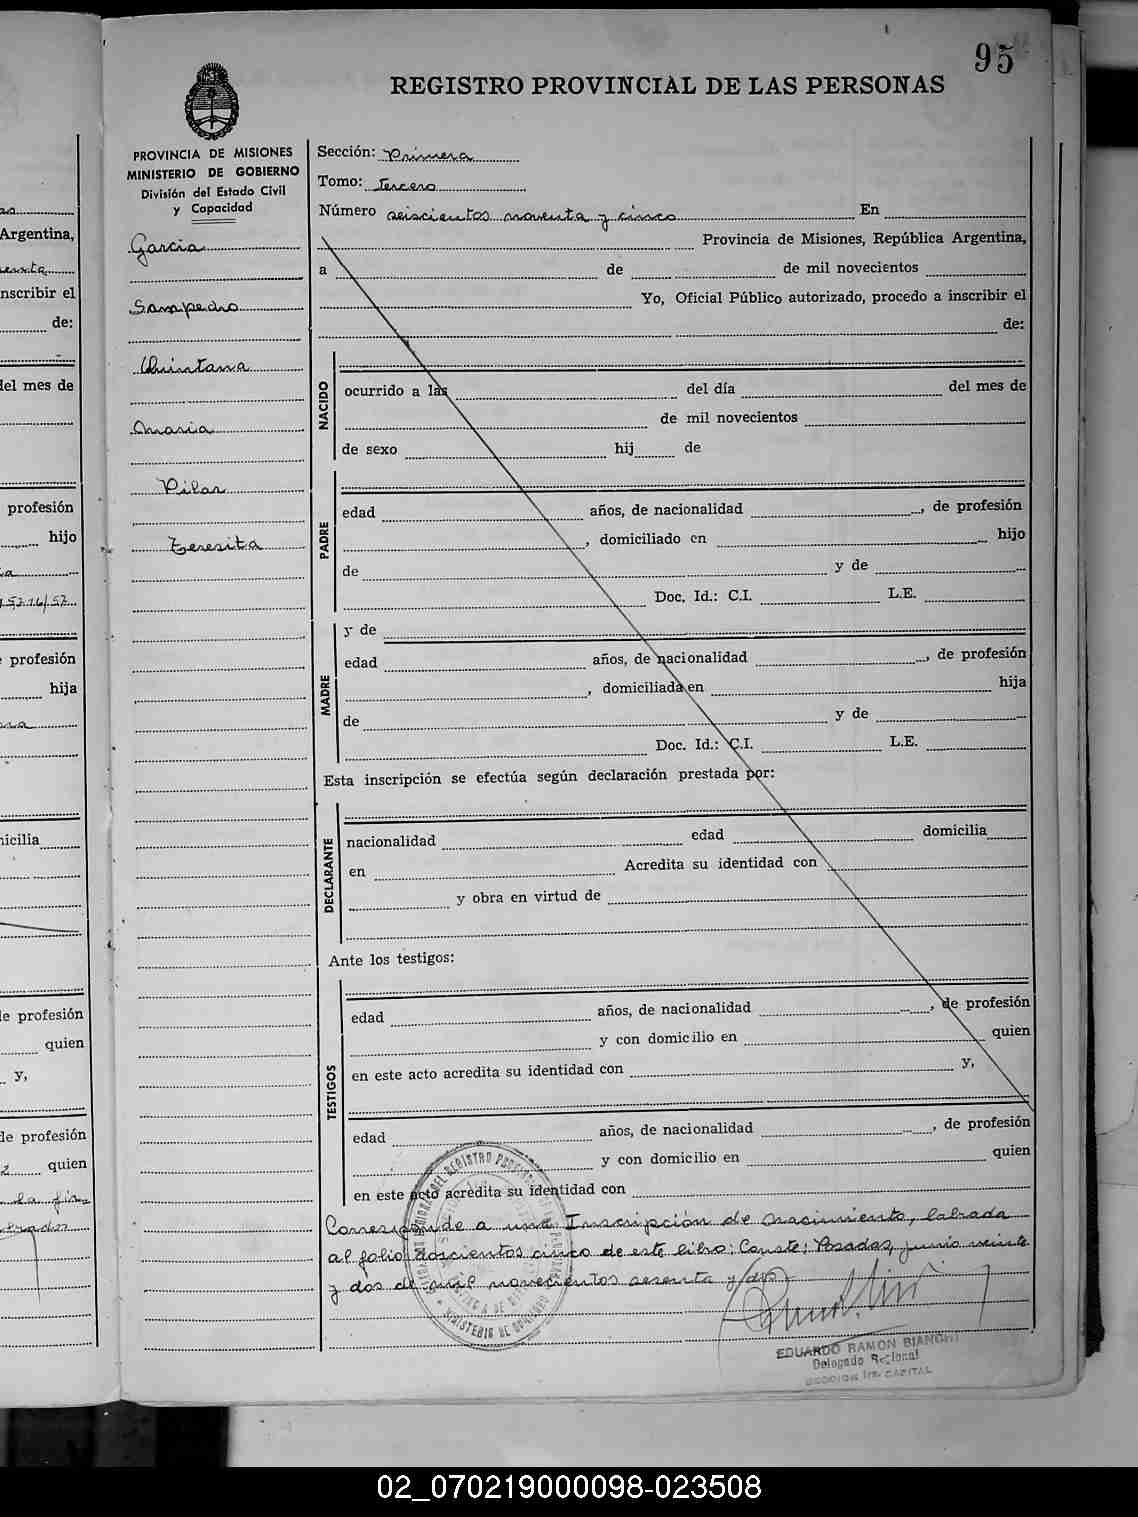 95
REGISTRO PROVINCIAL DE LAS PERSONAS
PROVINCIA DE MISIONES
MINISTERIO DE GOBIERNO
División del Estado Civil
y Capacidad
Garcia
Sampedro
Quintana
Maria
Pilar
Teresita
Sección: Primera
Tomo: Tercero
Número seiscientos noventa y cinco En
Provincia de Misiones, República Argentina,
a de de mil novecientos
Yo, Oficial Público autorizado, procedo a inscribir el
de:
NACIDO
ocurrido a las del día del mes de
de mil novecientos
de sexo hij de
PADRE
edad años, de nacionalidad , de profesión
, domiciliado en hijo
de y de
Doc. Id.: C.I. L.E.
MADRE
y de
edad años, de nacionalidad , de profesión
, domiciliada en hija
de y de
Doc. Id.: C.I. L.E.
Esta inscripción se efectúa según declaración prestada por:
DECLARANTE
nacionalidad edad domicilia
en Acredita su identidad con
y obra en virtud de
Ante los testigos:
TESTIGOS
edad años, de nacionalidad , de profesión
y con domicilio en quien
en este acto acredita su identidad con y,
edad años, de nacionalidad , de profesión
y con domicilio en quien
en este acto acredita su identidad con
Corresponde a una Inscripción de Nacimiento, labrada
al folio doscientos cinco de este libro: Conste: Posadas, junio veinte
y dos de mil novecientos sesenta y dos
MINISTERIO DE GOBIERNO
EDUARDO RAMON BIANCHI
Delegado Regional
SECCION 1ra. CAPITAL
Argentina,
nscribir el
de:
del mes de
profesión
hijo
profesión
hija
icilia
de profesión
quien
y,
de profesión
quien
02_070219000098-023508